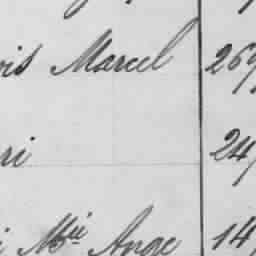 ois Marcel 269
ri 24
i Mie Ange 14